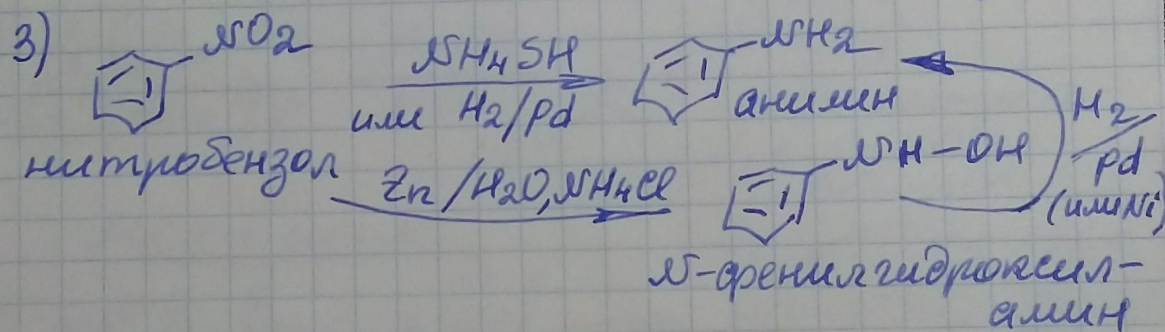 3)
NO2
NH4SH
или H2/Pd
NH2
анилин
нитробензол
Zn/H2O, NH4Cl
NH-OH
H2/Pd
(или Ni)
N-фенилгидроксил-
амин